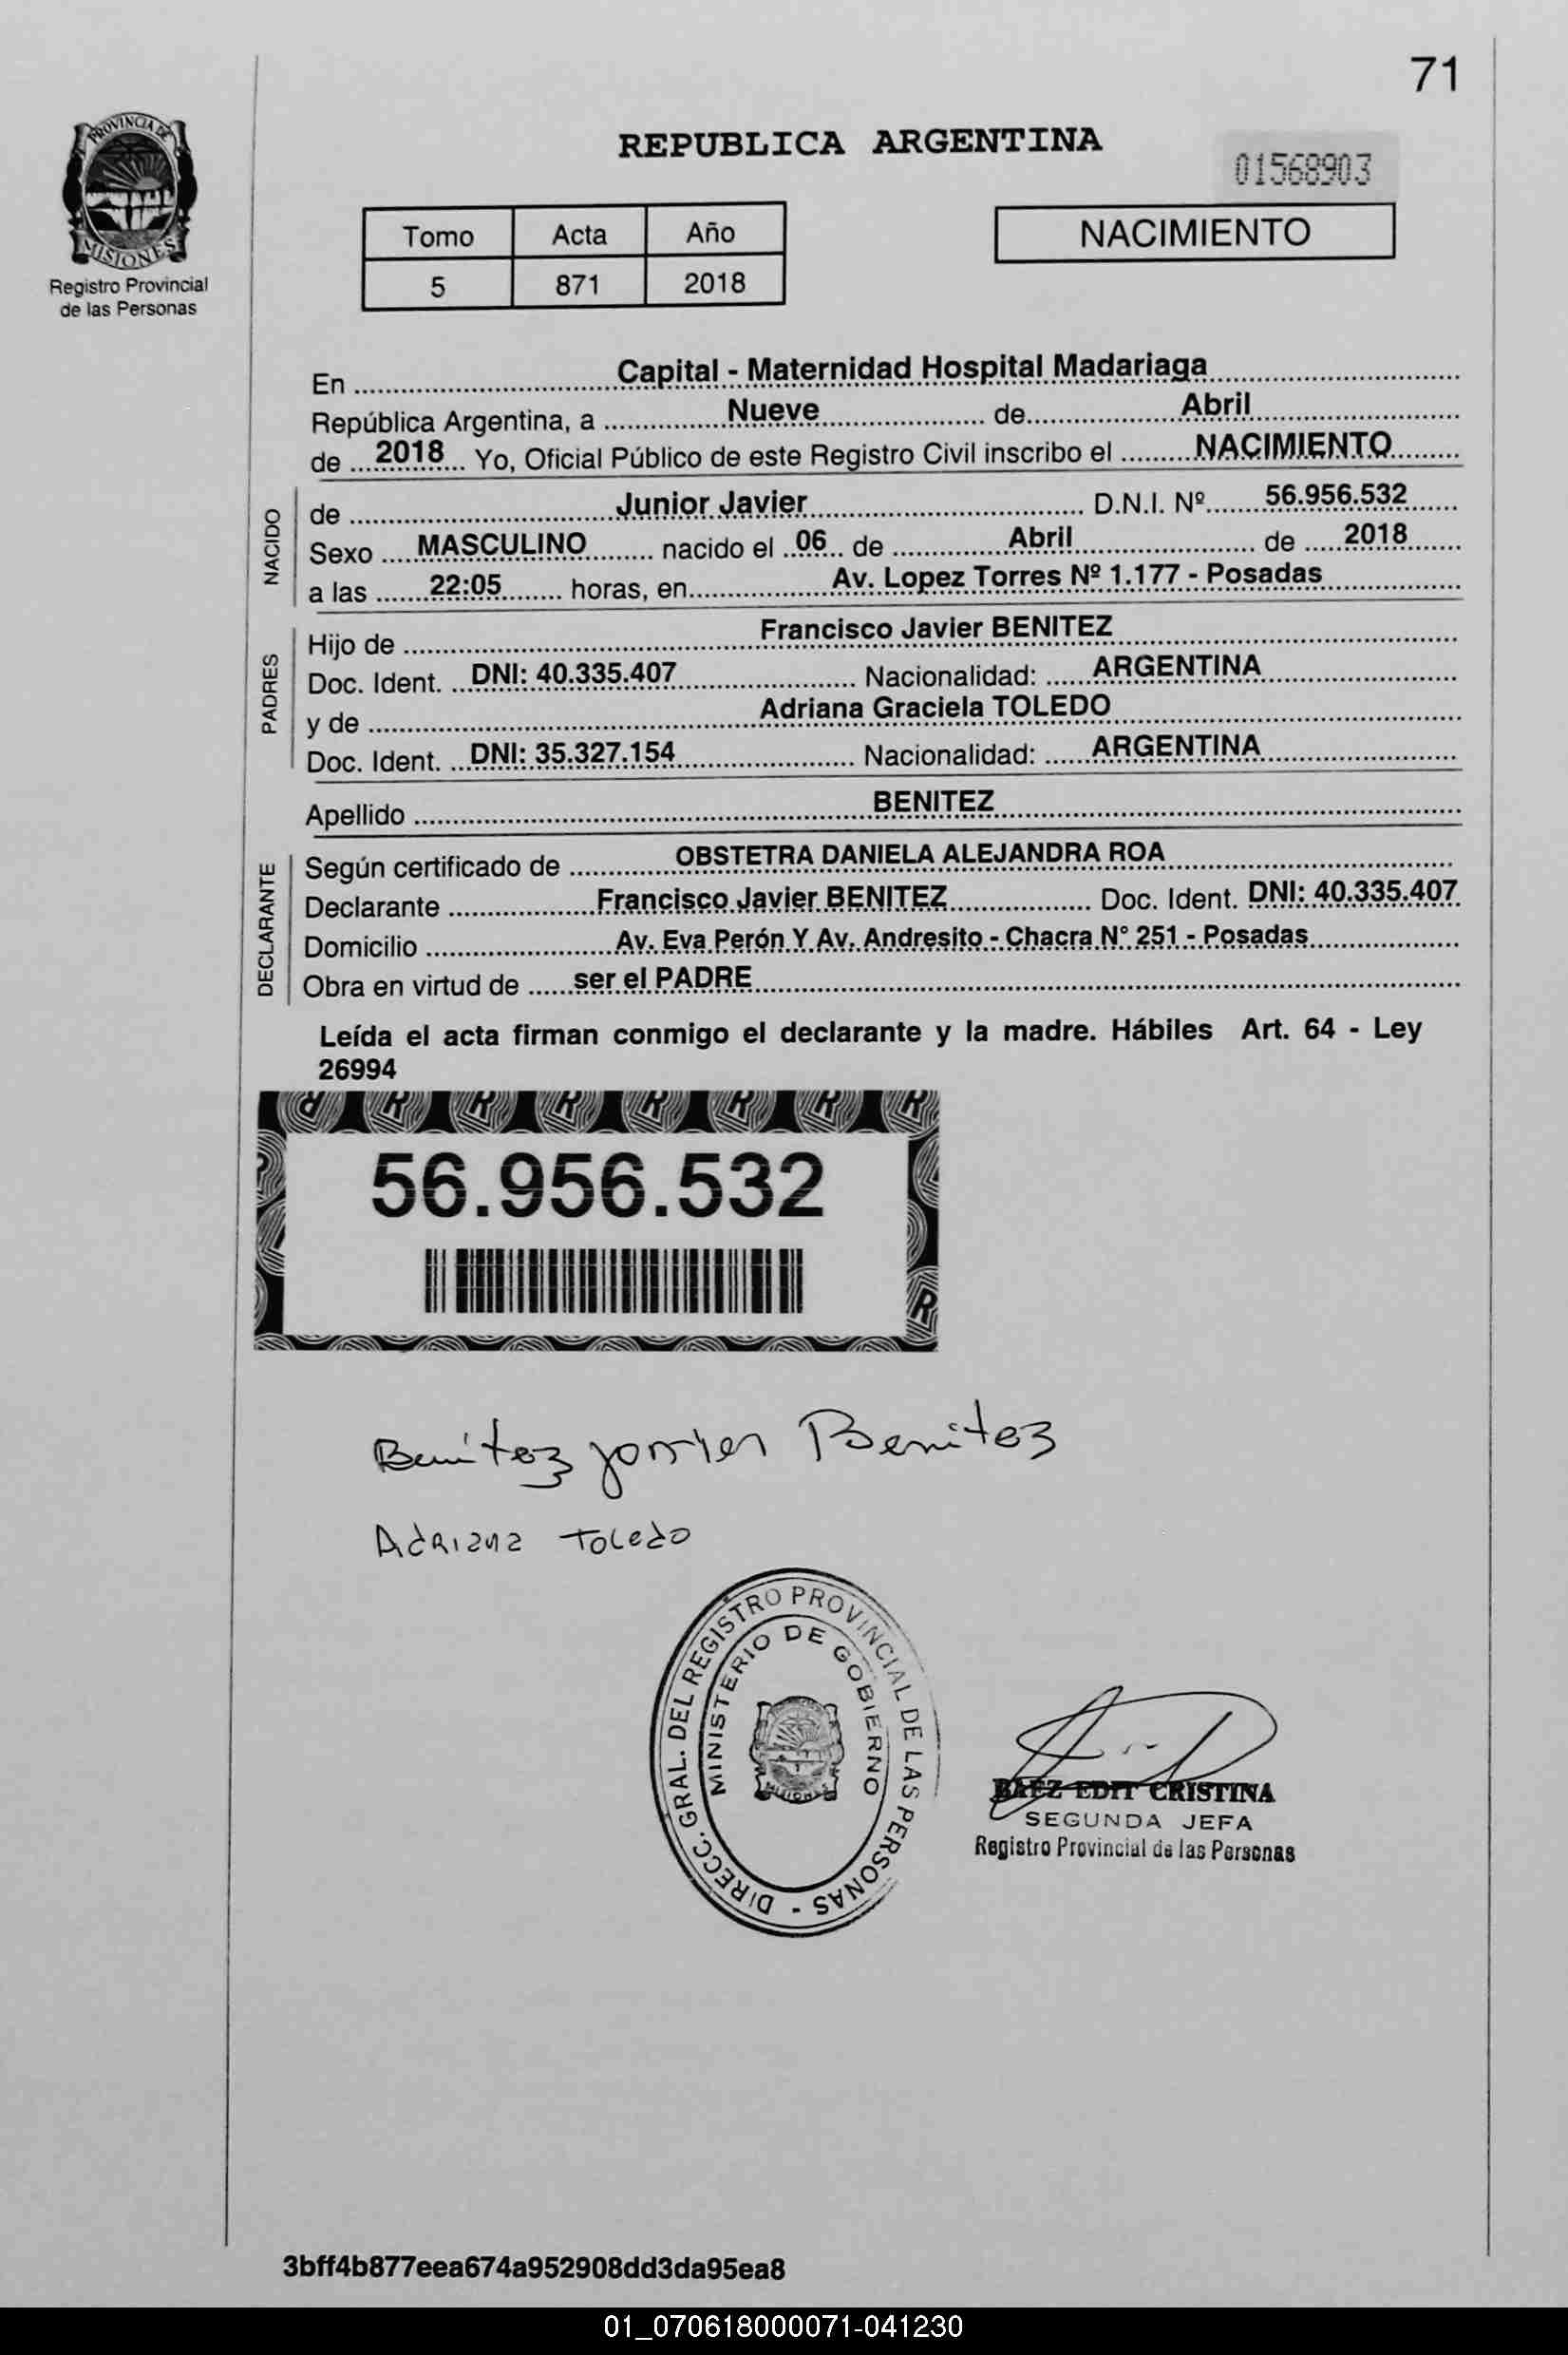 71
PROVINCIA DE
MISIONES
Registro Provincial
de las Personas
REPUBLICA ARGENTINA
01568903
Tomo Acta Año
5 871 2018
NACIMIENTO
En Capital - Maternidad Hospital Madariaga
República Argentina, a Nueve de Abril
de 2018 Yo, Oficial Público de este Registro Civil inscribo el NACIMIENTO
NACIDO
de Junior Javier D.N.I. Nº 56.956.532
Sexo MASCULINO nacido el 06 de Abril de 2018
a las 22:05 horas, en Av. Lopez Torres Nº 1.177 - Posadas
PADRES
Hijo de Francisco Javier BENITEZ
Doc. Ident. DNI: 40.335.407 Nacionalidad: ARGENTINA
y de Adriana Graciela TOLEDO
Doc. Ident. DNI: 35.327.154 Nacionalidad: ARGENTINA
Apellido BENITEZ
DECLARANTE
Según certificado de OBSTETRA DANIELA ALEJANDRA ROA
Declarante Francisco Javier BENITEZ Doc. Ident. DNI: 40.335.407
Domicilio Av. Eva Perón Y Av. Andresito - Chacra N° 251 - Posadas
Obra en virtud de ser el PADRE
Leída el acta firman conmigo el declarante y la madre. Hábiles Art. 64 - Ley
26994
56.956.532
Benítez Benitez
Adriana Toledo
DIRECC. GRAL. DEL REGISTRO PROVINCIAL DE LAS PERSONAS -
MINISTERIO DE GOBIERNO
MISIONES
BAEZ EDIT CRISTINA
SEGUNDA JEFA
Registro Provincial de las Personas
3bff4b877eea674a952908dd3da95ea8
01_070618000071-041230